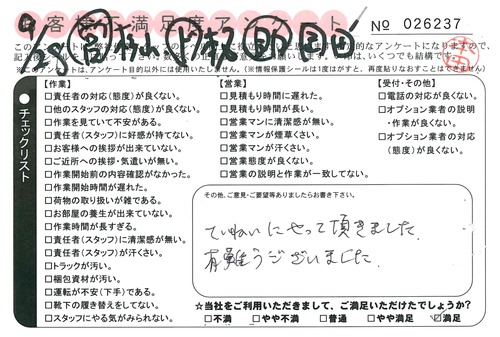 お客様ご満足度アンケート
No 026237
チェックリスト
【作業】
□責任者の対応(態度)が良くない。
□他のスタッフの対応(態度)が良くない。
□作業を見ていて不安がある。
□責任者(スタッフ)に好感が持てない。
□お客様への挨拶が出来ていない。
□ご近所への挨拶・気遣いが無い。
□作業開始前の内容確認がなかった。
□作業開始時間が遅れた。
□荷物の取り扱いが雑である。
□お部屋の養生が出来ていない。
□作業時間が長すぎる。
□責任者(スタッフ)に清潔感が無い。
□責任者(スタッフ)が汗くさい。
□トラックが汚い。
□梱包資材が汚い。
□運転が不安(下手)である。
□靴下の履き替えをしてない。
□スタッフにやる気がみられない。
【営業】
□見積もり時間に遅れた。
□見積もり時間が長い。
□営業マンに清潔感が無い。
□営業マンが煙草くさい。
□営業マンが汗くさい。
□営業態度が良くない。
□営業の説明と作業が一致してない。
【受付・その他】
□電話の対応が良くない。
□オプション業者の説明
・作業が良くない。
□オプション業者の対応
(態度)が良くない。
その他、ご意見・ご要望等ありましたらお書き下さい。
ていねいにやって頂きました。
有難うございました。
☆当社をご利用いただきまして、ご満足いただけたでしょうか?
□不満 □やや不満 □普通 □やや満足 □満足